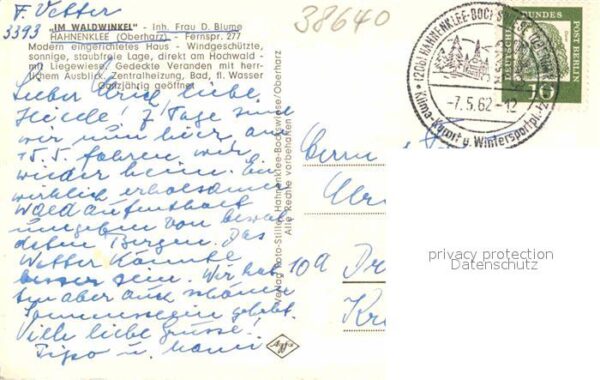 F. Vetter
3393
38640
"IM WALDWINKEL" - Inh. Frau D. Blume
HAHNENKLEE (Oberharz) - Fernspr. 277
Modern eingerichtetes Haus - Windgeschützte,
sonnige, staubfreie Lage, direkt am Hochwald -
mit Liegewiese, Gedeckte Veranden mit herr-
lichem Ausblick, Zentralheizung, Bad, fl. Wasser
Ganzjährig geöffnet
Lieber Erich, liebe
Heide! 7 Tage sind
wir nun hier, am
15.5. fahren wir
wieder heim. Ein
wirklich erholsamer
Waldaufenthalt
umgeben von bewal-
deten Bergen. Das
Wetter könnte
besser sein. Wir hat-
ten aber auch schöne
Sonnentage gehabt.
Viele liebe Grüsse!
u. Mami
Verlag Foto-Stiller, Hahnenklee-Bockswiese/Oberharz
Alle Rechte vorbehalten
Agfa
(20b) HAHNENKLEE-BOCKSWIESE
-7.5.62-12
Klima-Kurort u. Wintersportpl.
DEUTSCHE BUNDESPOST BERLIN
10
Herrn
10a
Kr
privacy protection
Datenschutz